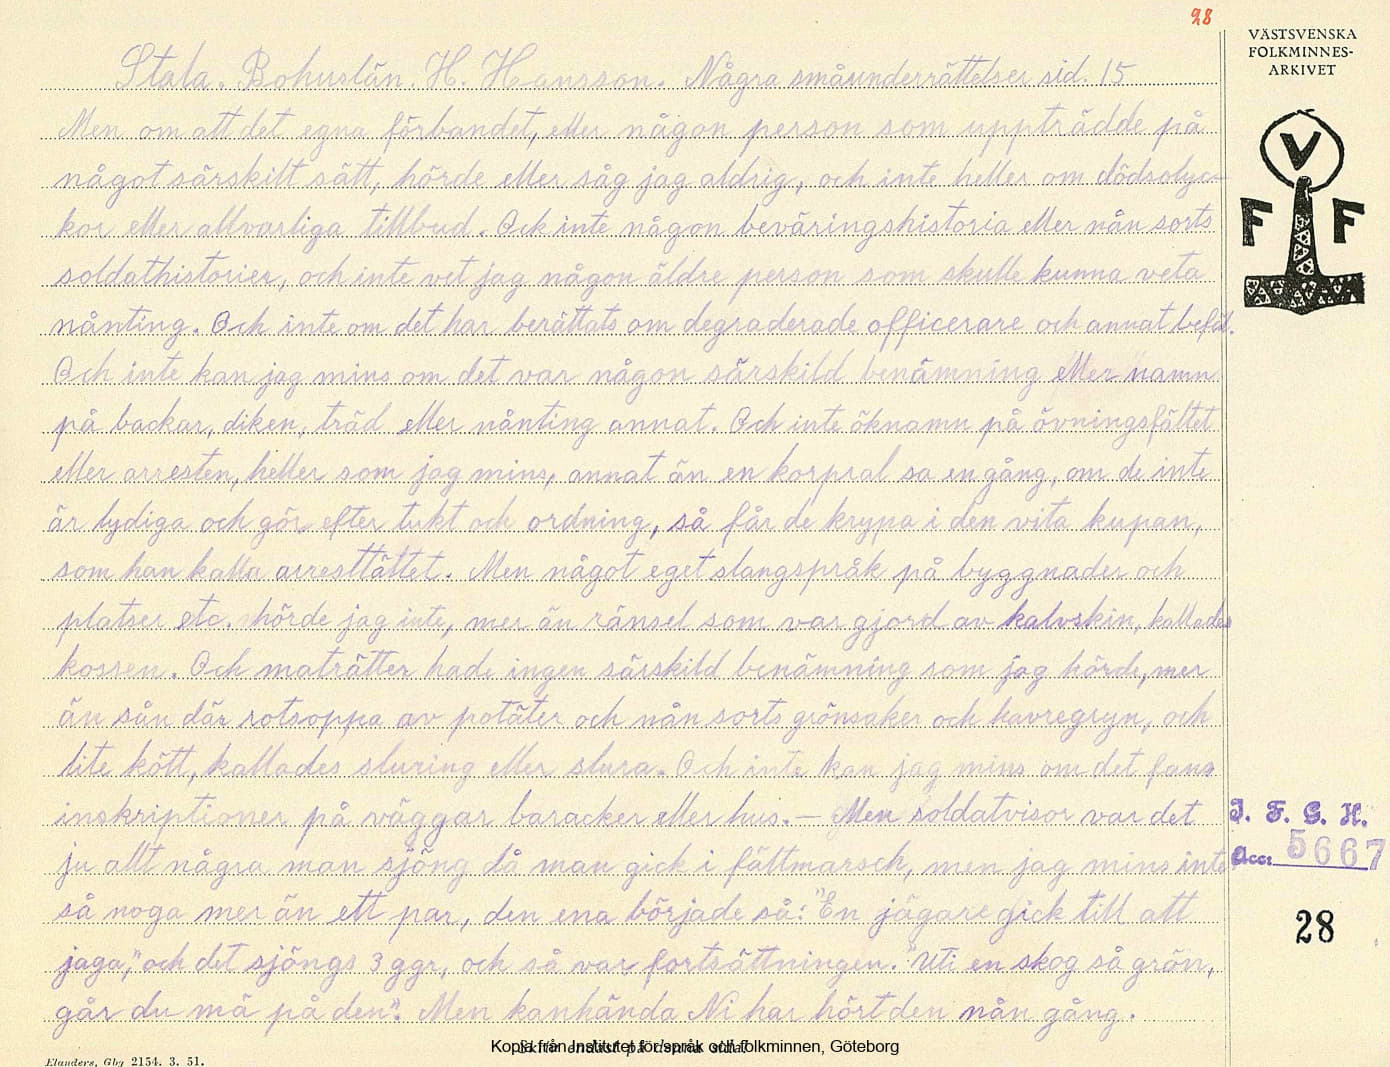 28
Stala. Bohuslän. H. Hansson. Några småunderrättelser sid. 15
Men om att det egna förbandet, eller någon person som uppträdde på
något särskilt sätt, hörde eller såg jag aldrig, och inte heller om dödsolyc-
kor eller allvarliga tillbud. Och inte någon beväringshistoria eller nån sorts
soldathistorier, och inte vet jag någon äldre person som skulle kunna veta
nånting. Och inte om det har berättats om degraderade officerare och annat befäl.
Och inte kan jag mins om det var någon särskild benämning eller namn
på backar, diken, träd eller nånting annat. Och inte öknamn på övningsfältet
eller arresten, heller som jag mins, annat än en korpral sa en gång, om de inte
är lydiga och gör efter tukt och ordning, så får de krypa i den vita kupan,
som han kalla arresttältet. Men något eget slangspråk på byggnader och
platser etc. hörde jag inte, mer än ränsel som var gjord av kalvskin, kallades
kossen. Och maträtter hade ingen särskild benämning som jag hörde, mer
än sån där rotsoppa av potäter och nån sorts grönsaker och havregryn, och
lite kött, kallades sluring eller slura. Och inte kan jag mins om det fans
inskriptioner på väggar baracker eller hus. — Men soldatvisor var det
ju allt några man sjöng då man gick i fältmarsch, men jag mins inte
så noga mer än ett par, den ena började så: "En jägare gick till att
jaga," och det sjöngs 3 ggr, och så var fortsättningen. "Uti en skog så grön,
går du mä på den". Men kanhända Ni har hört den nån gång.
VÄSTSVENSKA
FOLKMINNES-
ARKIVET
V
F F
I. F. G. H.
Acc: 5667
28
Skriv endast på denna sida!
Kopia från Institutet för språk och folkminnen, Göteborg
Elanders, Gbg 2154. 3. 51.